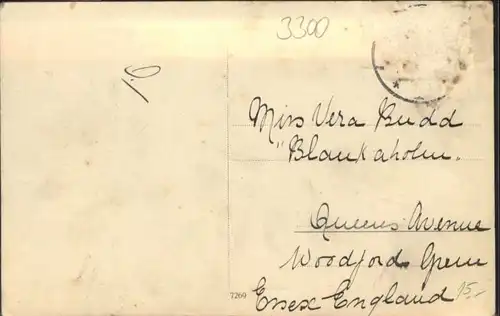 3300
Miss Vera Budd
"Blankaholm.
Queens Avenue
Woodford Green
Essex England
15.-
7269